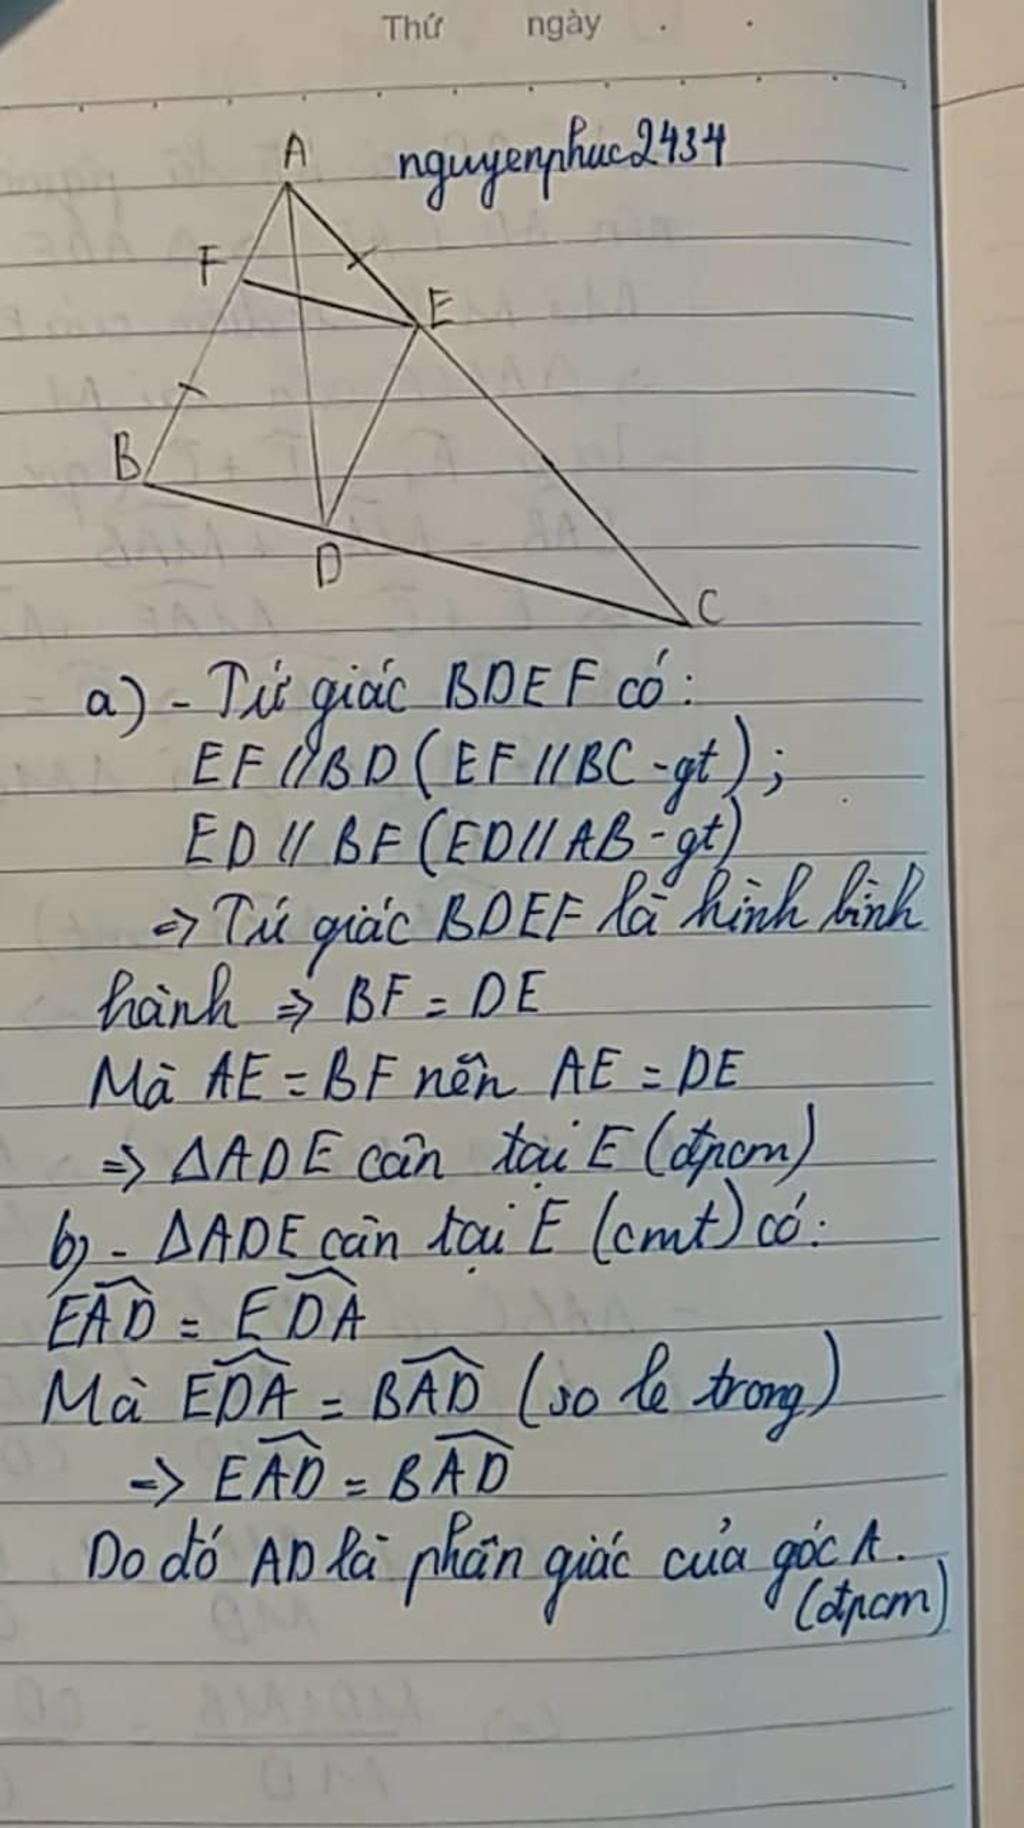 Thứ ngày . .
A nguyenphuc2434
F
E
B
D
C
a) - Tứ giác BDEF có:
EF // BD (EF // BC - gt);
ED // BF (ED // AB - gt)
=> Tứ giác BDEF là hình bình
hành => BF = DE
Mà AE = BF nên AE = DE
=> ΔADE cân tại E (đpcm)
b) - ΔADE cân tại E (cmt) có:
EAD̂ = EDÂ
Mà EDÂ = BAD̂ (so le trong)
=> EAD̂ = BAD̂
Do đó AD là phân giác của góc A.
(đpcm)